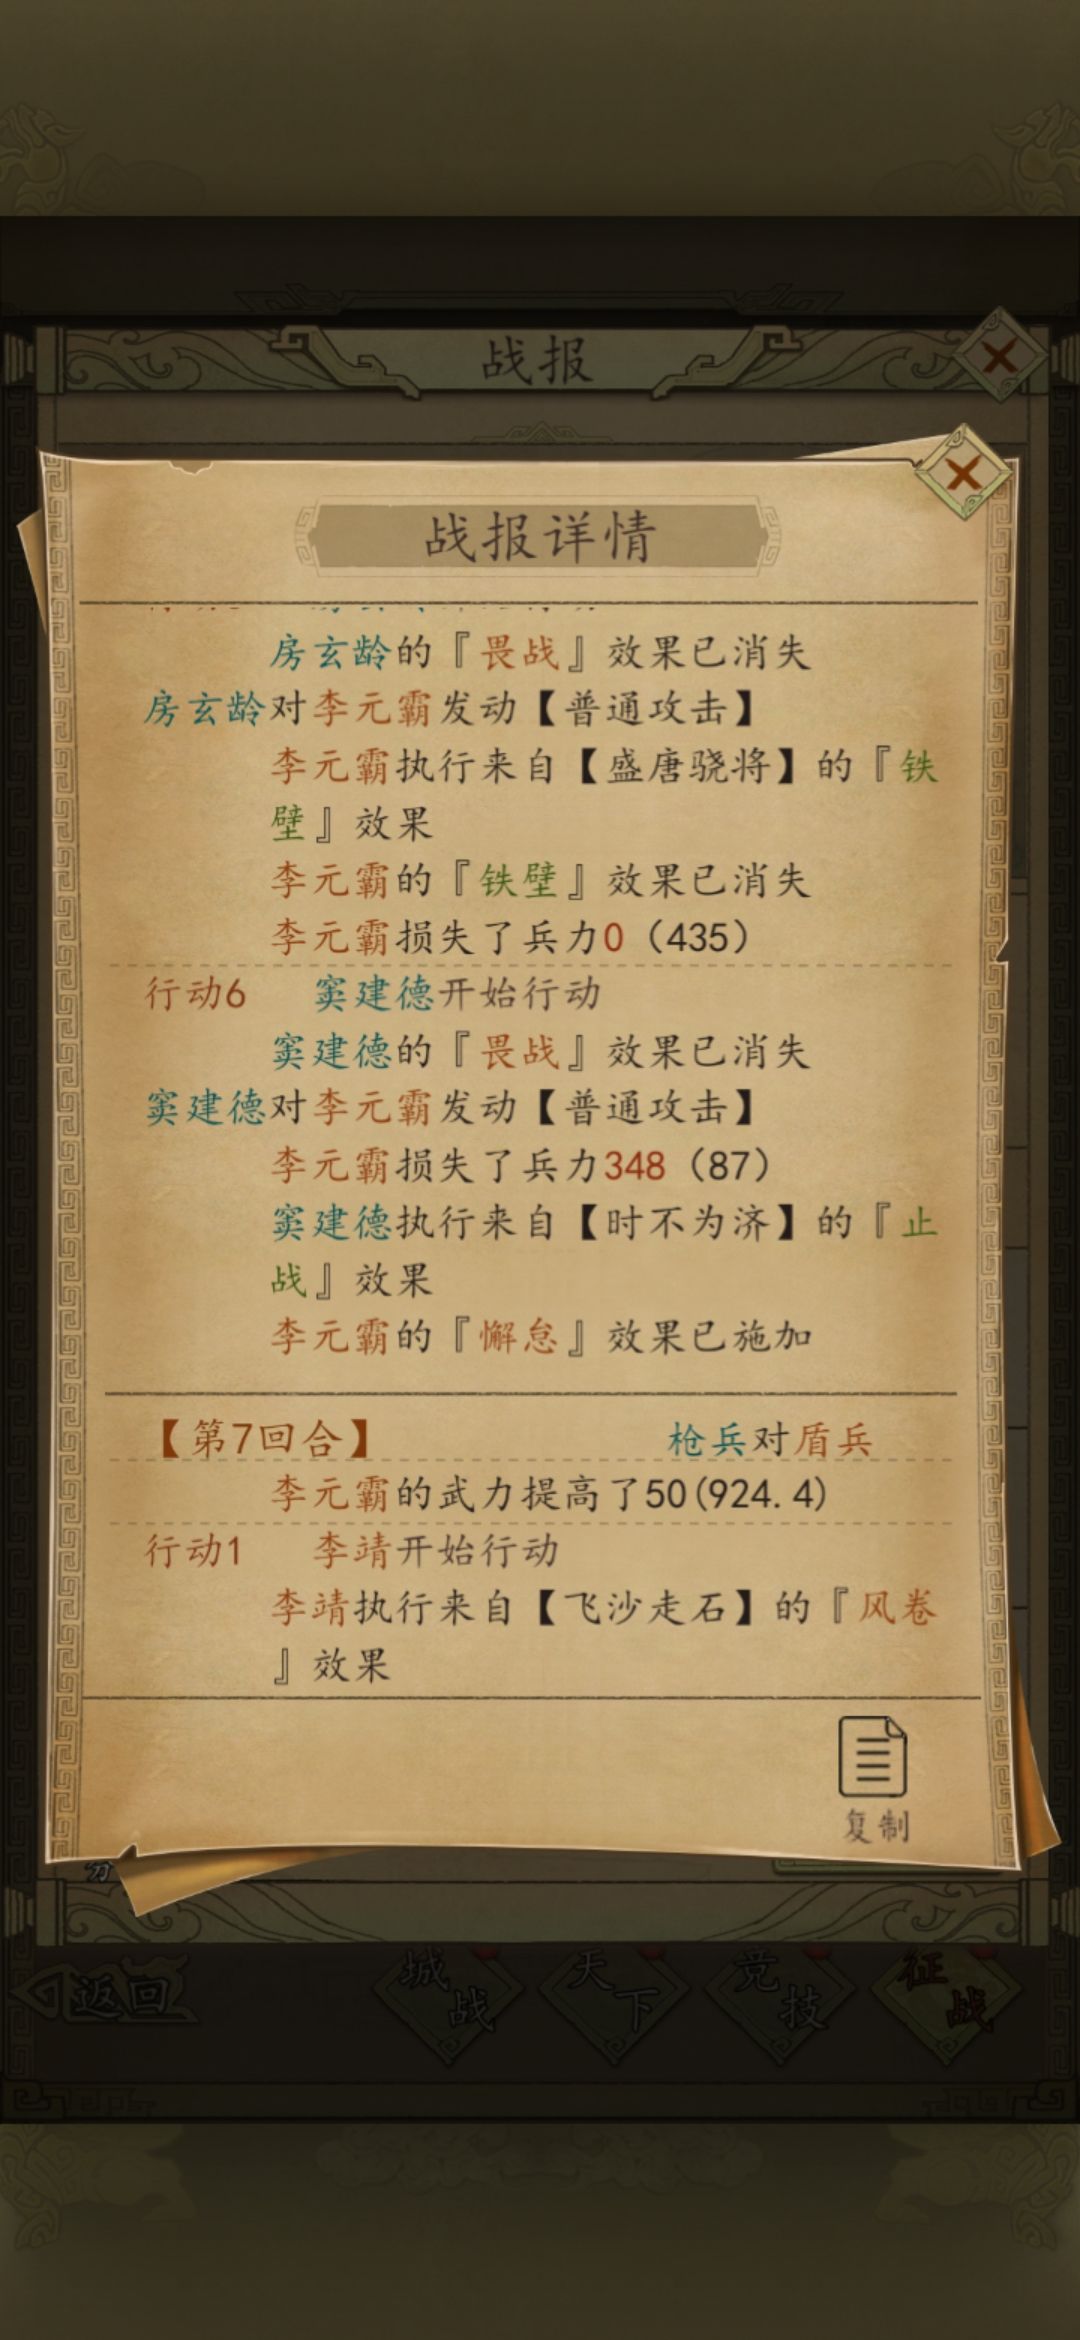 战报
战报详情
房玄龄的『畏战』效果已消失
房玄龄对李元霸发动【普通攻击】
李元霸执行来自【盛唐骁将】的『铁
壁』效果
李元霸的『铁壁』效果已消失
李元霸损失了兵力0（435）
行动6 窦建德开始行动
窦建德的『畏战』效果已消失
窦建德对李元霸发动【普通攻击】
李元霸损失了兵力348（87）
窦建德执行来自【时不为济】的『止
战』效果
李元霸的『懈怠』效果已施加
【第7回合】 枪兵对盾兵
李元霸的武力提高了50(924.4)
行动1 李靖开始行动
李靖执行来自【飞沙走石】的『风卷
』效果
复制
返回 城战 天下 竞技 征战